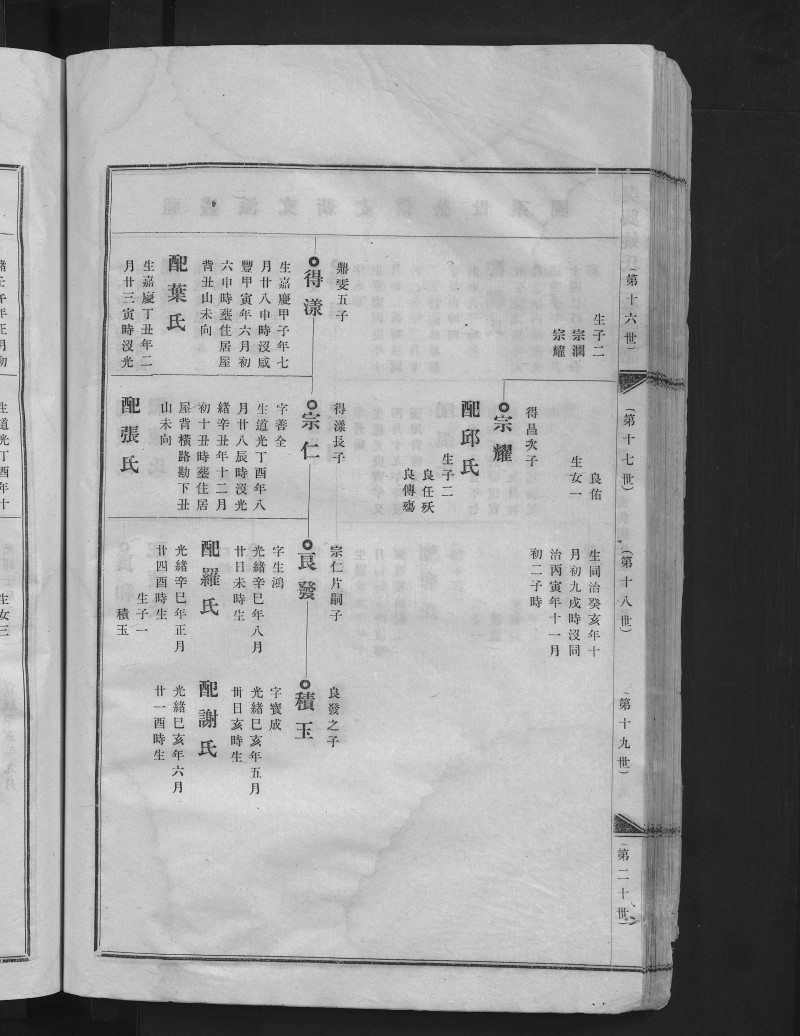 第十六世
第十七世
第十八世
第十九世
第二十世
生子二
宗潤
宗耀
鼎雯五子
得漾
生嘉慶甲子年七
月廿八申時沒咸
豐甲寅年六月初
六申時塟住居屋
背丑山未向
配葉氏
生嘉慶丁丑年二
月廿三寅時沒光
良佑
生女一
得昌次子
宗耀
配邱氏
生子二
良任殀
良傳殤
得漾長子
宗仁
字善全
生道光丁酉年八
月廿八辰時沒光
緒辛丑年十二月
初十丑時塟住居
屋背橫路勘下丑
山未向
配張氏
生同治癸亥年十
月初九戌時沒同
治丙寅年十一月
初二子時
宗仁片嗣子
良發
字生鴻
光緒辛巳年八月
廿日未時生
配羅氏
光緒辛巳年正月
廿四酉時生
生子一
積玉
良發之子
積玉
字寶成
光緒己亥年五月
卅日亥時生
配謝氏
光緒己亥年六月
廿一酉時生
生道光丁酉年十
生女三